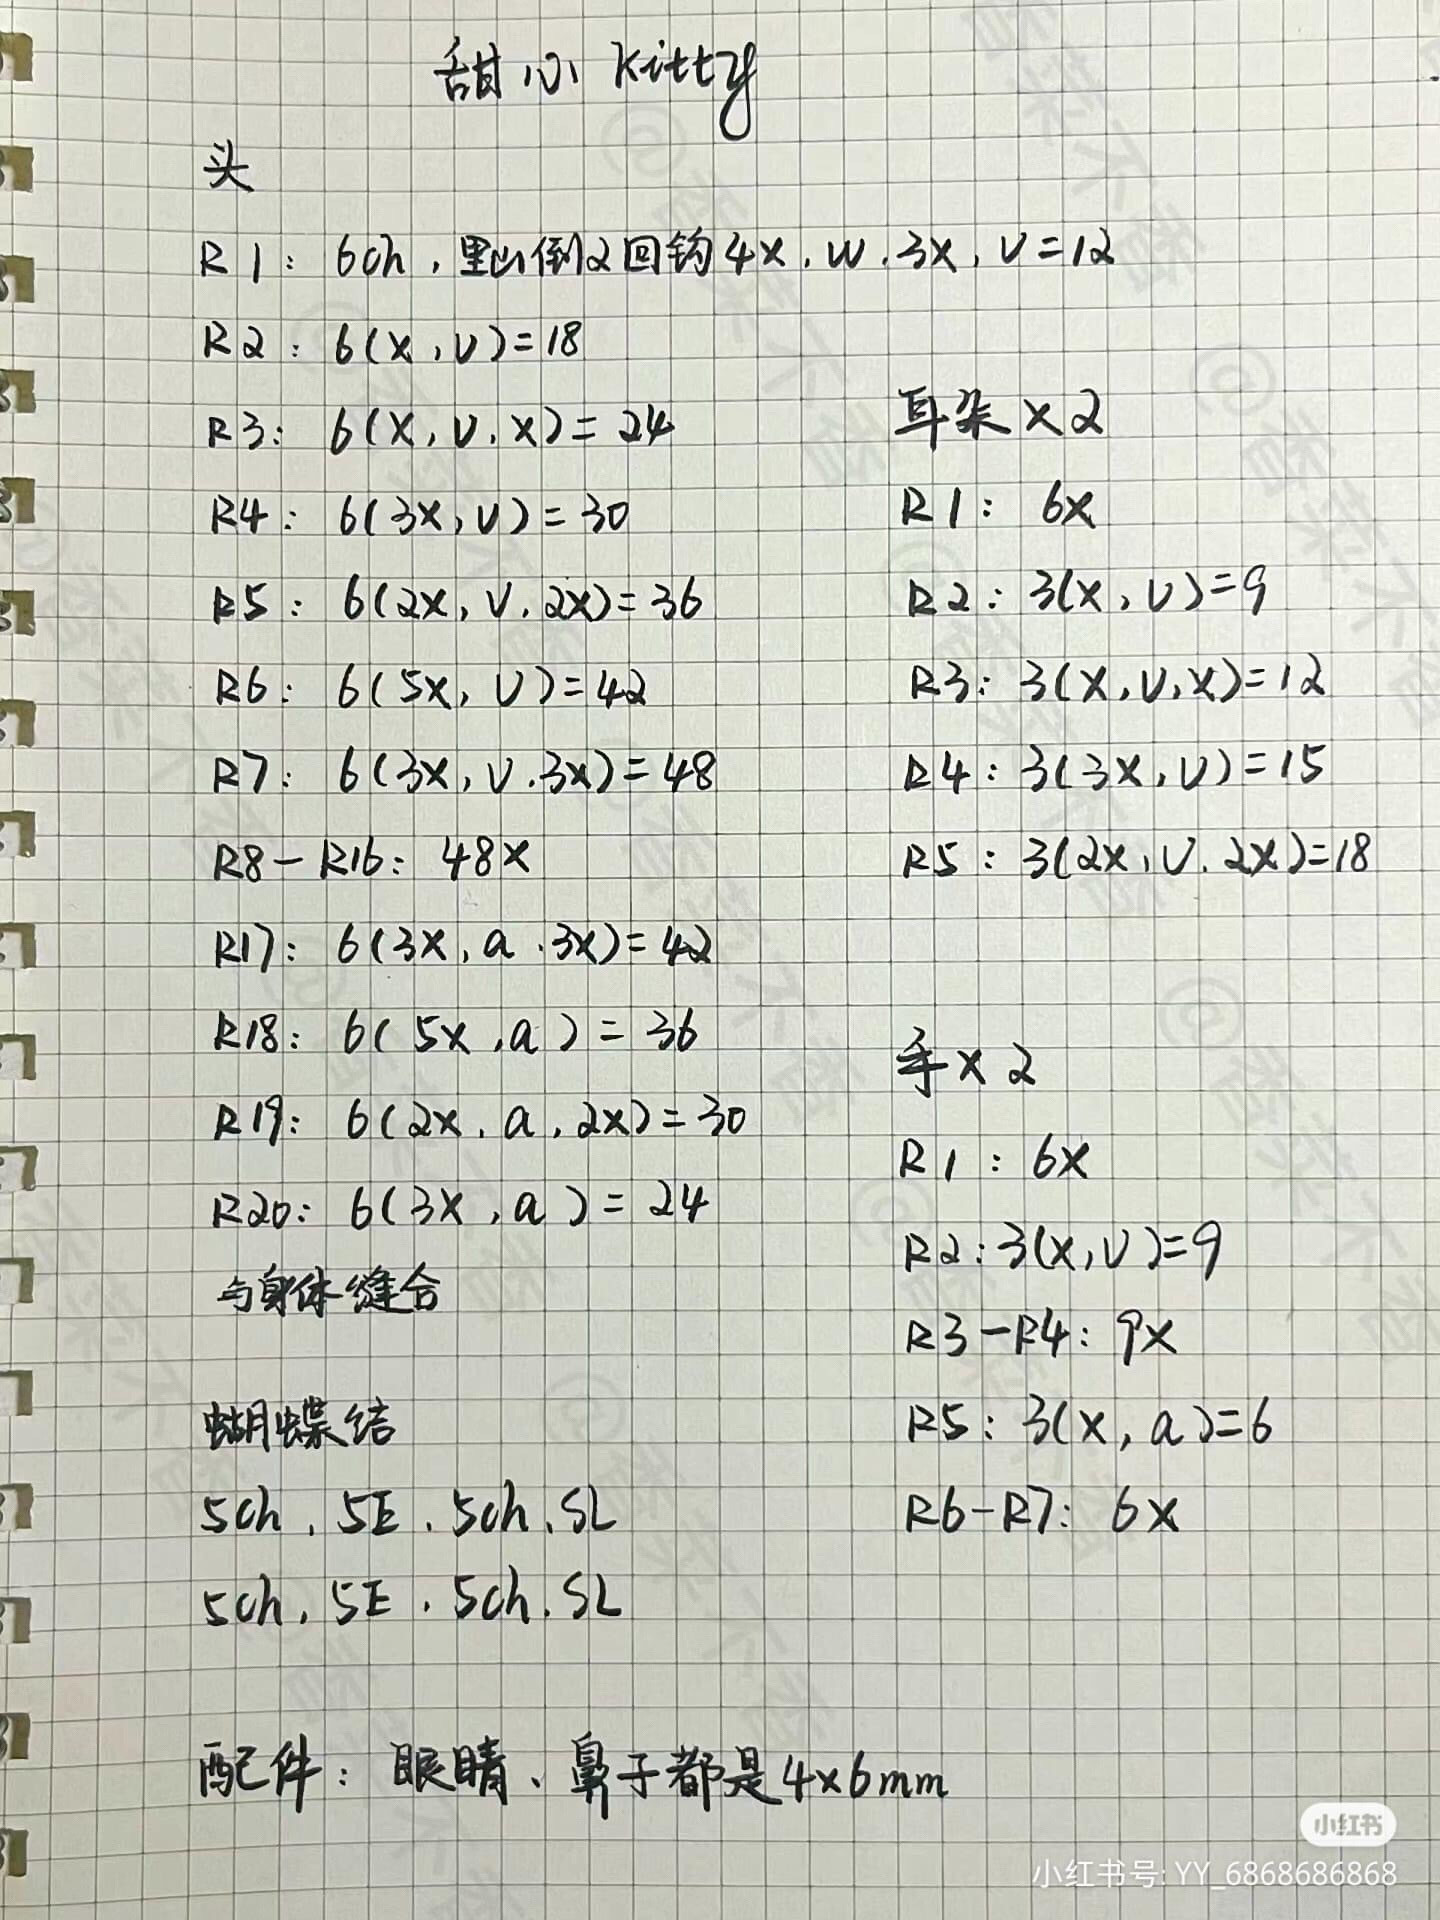 甜心Kitty
头
R1：6ch，里山倒2回钩4x，w，3x，v=12
R2：6(x，v)=18
R3：6(x，v，x)=24
R4：6(3x，v)=30
R5：6(2x，v，2x)=36
R6：6(5x，v)=42
R7：6(3x，v，3x)=48
R8-R16：48x
R17：6(3x，a，3x)=42
R18：6(5x，a)=36
R19：6(2x，a，2x)=30
R20：6(3x，a)=24
与身体缝合
蝴蝶结
5ch，5E，5ch，SL
5ch，5E，5ch，SL
耳朵x2
R1：6x
R2：3(x，v)=9
R3：3(x，v，x)=12
R4：3(3x，v)=15
R5：3(2x，v，2x)=18
手x2
R1：6x
R2：3(x，v)=9
R3-R4：9x
R5：3(x，a)=6
R6-R7：6x
配件：眼睛、鼻子都是4x6mm
小红书
小红书号: YY_6868686868
@香菜不香